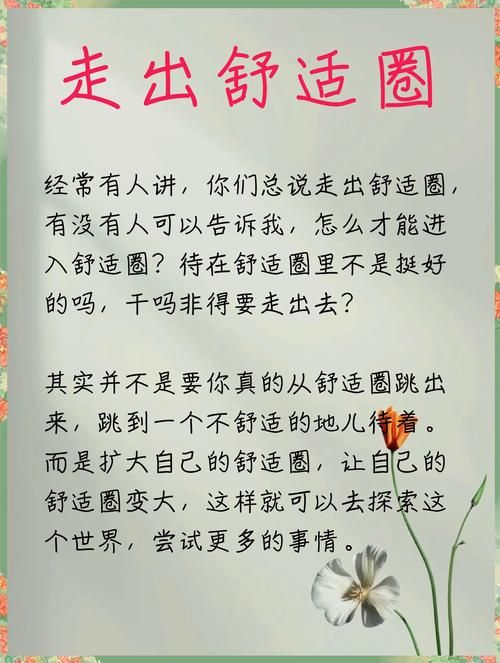 走出舒适圈
经常有人讲，你们总说走出舒适圈，
有没有人可以告诉我，怎么才能进
入舒适圈？待在舒适圈里不是挺好
的吗，干吗非得要走出去？
其实并不是要你真的从舒适圈跳出
来，跳到一个不舒适的地儿待着。
而是扩大自己的舒适圈，让自己的
舒适圈变大，这样就可以去探索这
个世界，尝试更多的事情。